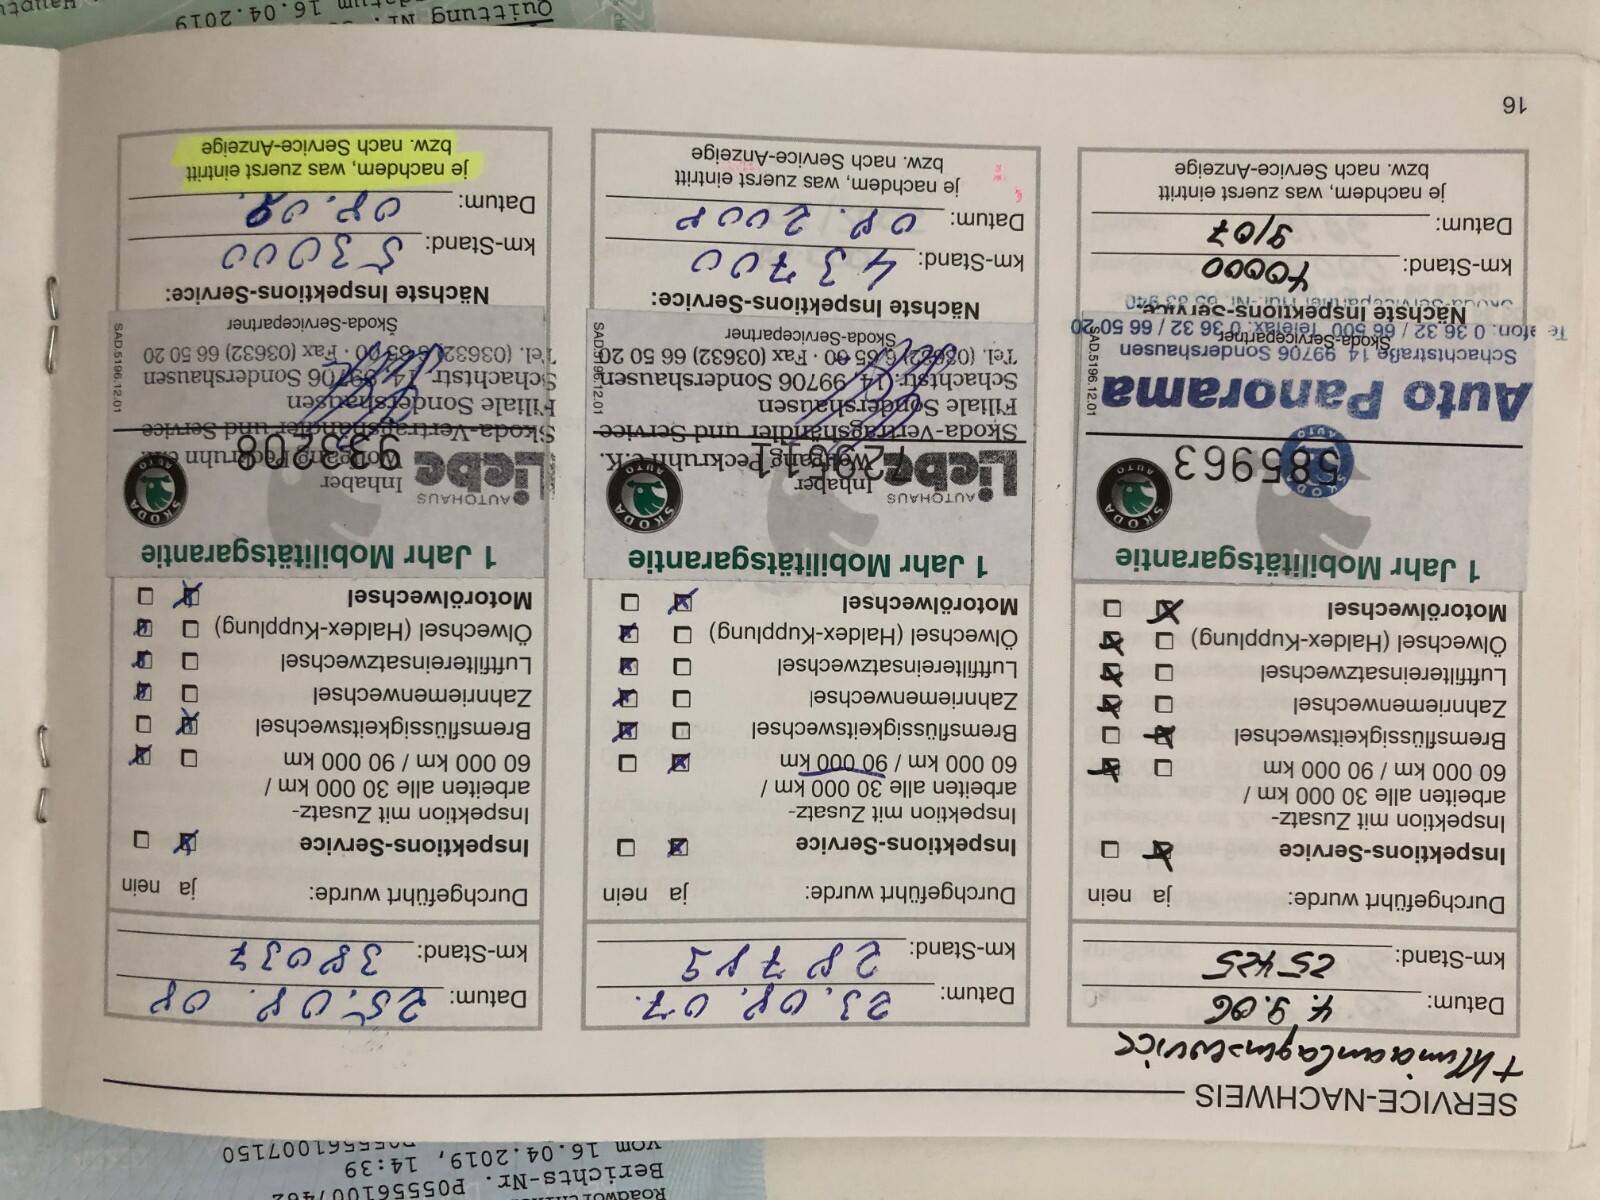 Berichts-Nr.
vom 16.04.2019, 14:39
P055561007150
SERVICE-NACHWEIS
+ Klimaanlagenservice
Datum: 4.9.06
km-Stand: 25425
Durchgeführt wurde: ja nein
Inspektions-Service
Inspektion mit Zusatz-
arbeiten alle 30 000 km /
60 000 km / 90 000 km
Bremsflüssigkeitswechsel
Zahnriemenwechsel
Luftfiltereinsatzwechsel
Ölwechsel (Haldex-Kupplung)
Motorölwechsel
1 Jahr Mobilitätsgarantie
SKODA
AUTO
585963
Auto Panorama
Schachtstraße 14 99706 Sondershausen
Škoda-Servicepartner
Telefon: 0 36 32 / 66 500 Telefax: 0 36 32 / 66 50 20
SAD.5196.12.01
Nächste Inspektions-Service:
km-Stand: 40000
Datum: 9/07
je nachdem, was zuerst eintritt
bzw. nach Service-Anzeige
Datum: 23.08.07.
km-Stand: 28789
Durchgeführt wurde: ja nein
Inspektions-Service
Inspektion mit Zusatz-
arbeiten alle 30 000 km /
60 000 km / 90 000 km
Bremsflüssigkeitswechsel
Zahnriemenwechsel
Luftfiltereinsatzwechsel
Ölwechsel (Haldex-Kupplung)
Motorölwechsel
1 Jahr Mobilitätsgarantie
SKODA
AUTO
AUTOHAUS
Liebe
Inhaber
Wolfgang Peckruhn e.K.
Skoda-Vertragshändler und Service
Filiale Sondershausen
Schachtstr. 14, 99706 Sondershausen
Tel. (03632) 6 65 00 · Fax (03632) 66 50 20
Škoda-Servicepartner
SAD.5196.12.01
Nächste Inspektions-Service:
km-Stand: 43700
Datum: 08.2008
je nachdem, was zuerst eintritt
bzw. nach Service-Anzeige
Datum: 25.08.08
km-Stand: 38037
Durchgeführt wurde: ja nein
Inspektions-Service
Inspektion mit Zusatz-
arbeiten alle 30 000 km /
60 000 km / 90 000 km
Bremsflüssigkeitswechsel
Zahnriemenwechsel
Luftfiltereinsatzwechsel
Ölwechsel (Haldex-Kupplung)
Motorölwechsel
1 Jahr Mobilitätsgarantie
SKODA
AUTO
AUTOHAUS
Liebe
Inhaber
Wolfgang Peckruhn e.K.
933208
Skoda-Vertragshändler und Service
Filiale Sondershausen
Schachtstr. 14, 99706 Sondershausen
Tel. (03632) 6 65 00 · Fax (03632) 66 50 20
Škoda-Servicepartner
SAD.5196.12.01
Nächste Inspektions-Service:
km-Stand: 53000
Datum: 08.09.
je nachdem, was zuerst eintritt
bzw. nach Service-Anzeige
16
16.04.2019
Quittung